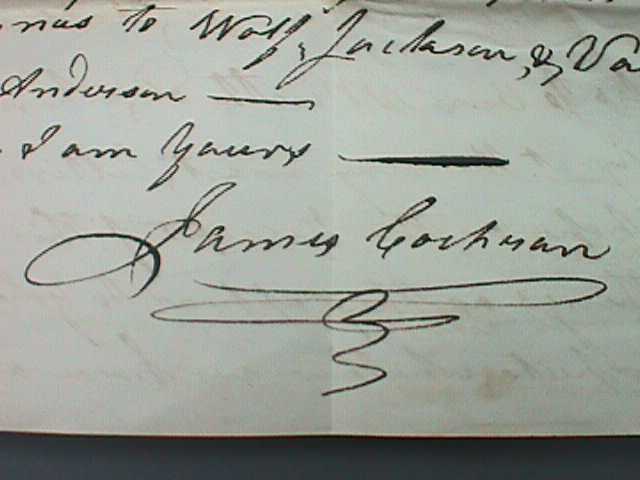 to Wolf, Jackson, & Va
Anderson —
I am Yours —
James Cochran